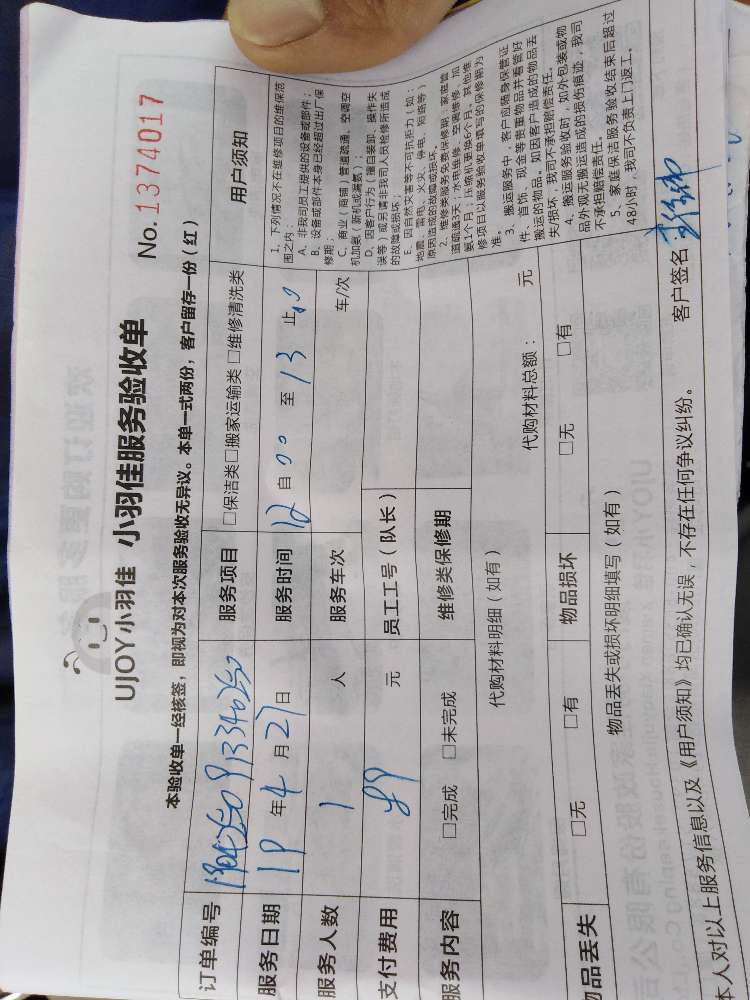 UJOY小羽佳 小羽佳服务验收单
No.1374017
本验收单一经核签，即视为对本次服务验收无异议。本单一式两份，客户留存一份（红）
订单编号
服务项目 □保洁类□搬家运输类 □维修清洗类
服务日期 19 年 4 月 27 日 服务时间 12 自 00 至 13 止
服务人数 1 人 服务车次 车/次
支付费用 元 员工工号（队长）
服务内容 □完成 □未完成 维修类保修期
代购材料明细（如有） 代购材料总额： 元
品丢失 □无 □有 物品损坏 □无 □有
物品丢失或损坏明细填写（如有）
用户须知
1、下列情况不在维修项目的维保范
围之内：
A、非我司员工提供的设备或部件；
B、设备或部件本身已经超过出厂保
修期；
C、商业（商铺）管道疏通、空调空
机加氨（新机或漏氨）；
D、因客户行为（擅自装卸、操作失
误等）或另请非我司人员检修所造成
的故障或损坏；
E、因自然灾害等不可抗拒力（如：
地震、雷电、火灾、停电、短路等）
原因造成的故障或损坏。
2、维修类服务免费保修期：家庭管
道疏通3天；水电维修、空调维修、加
氨1个月；压缩机更换6个月。其他维
修项目以服务验收单填写的保修期为
准。
3、搬运服务中，客户应随身保管证
件、首饰、现金等贵重物品并看管好
搬运的物品。如因客户造成的物品丢
失/损坏，我司不承担赔偿责任。
4、搬运服务验收时，如外包装或物
品外观无搬运造成的损伤痕迹，我司
不承担赔偿责任。
5、家庭保洁服务验收结束后超过
48小时，我司不负责上门返工。
本人对以上服务信息以及《用户须知》均已确认无误，不存在任何争议纠纷。 客户签名：